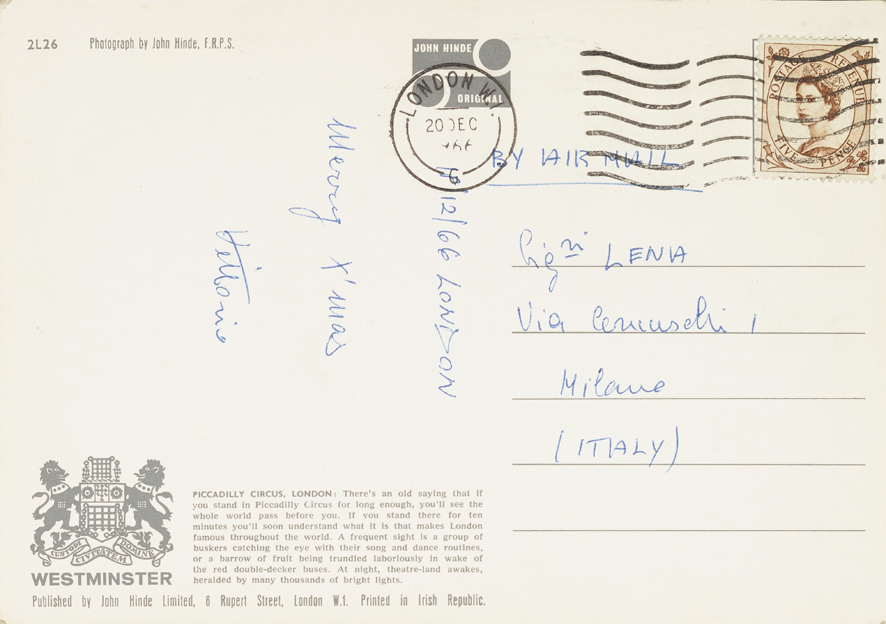 2L26
Photograph by John Hinde, F.R.P.S.
JOHN HINDE
ORIGINAL
LONDON W.1.
20 DEC
G
POSTAGE REVENUE
FIVE PENCE
BY AIR MAIL
/12/66 LONDON
Merry X'mas
Vittorio
Sigri LENA
Via Cernuschi 1
Milano
(ITALY)
CUSTODI CIVITATEM DOMINE
WESTMINSTER
PICCADILLY CIRCUS, LONDON: There's an old saying that if
you stand in Piccadilly Circus for long enough, you'll see the
whole world pass before you. If you stand there for ten
minutes you'll soon understand what it is that makes London
famous throughout the world. A frequent sight is a group of
buskers catching the eye with their song and dance routines,
or a barrow of fruit being trundled laboriously in wake of
the red double-decker buses. At night, theatre-land awakes,
heralded by many thousands of bright lights.
Published by John Hinde Limited, 6 Rupert Street, London W.1. Printed in Irish Republic.